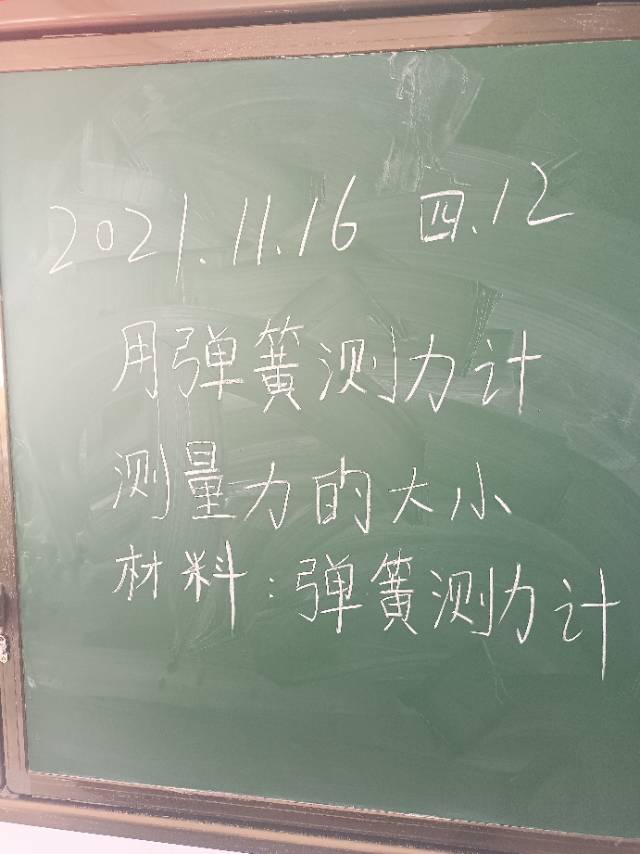 2021.11.16 四.12
用弹簧测力计
测量力的大小
材料:弹簧测力计